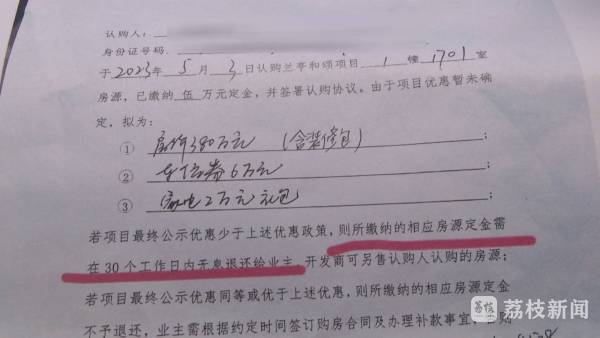 认购人：
身份证号码：
于2023年 5 月 3 日认购兰亭和颂项目 1 幢 1701 室
房源，已缴纳 伍 万元定金，并签署认购协议。由于项目优惠暂未确
定，拟为：
① 房价380万元 （含装修包） ；
② 车位券6万元 ；
③ 家电2万元礼包 ；
若项目最终公示优惠少于上述优惠政策，则所缴纳的相应房源定金需
在30个工作日内无息退还给业主，开发商可另售认购人认购的房源；
若项目最终公示优惠同等或优于上述优惠，则所缴纳的相应房源定金
不予退还，业主需根据约定时间签订购房合同及办理补款事宜，
荔枝 荔枝新闻